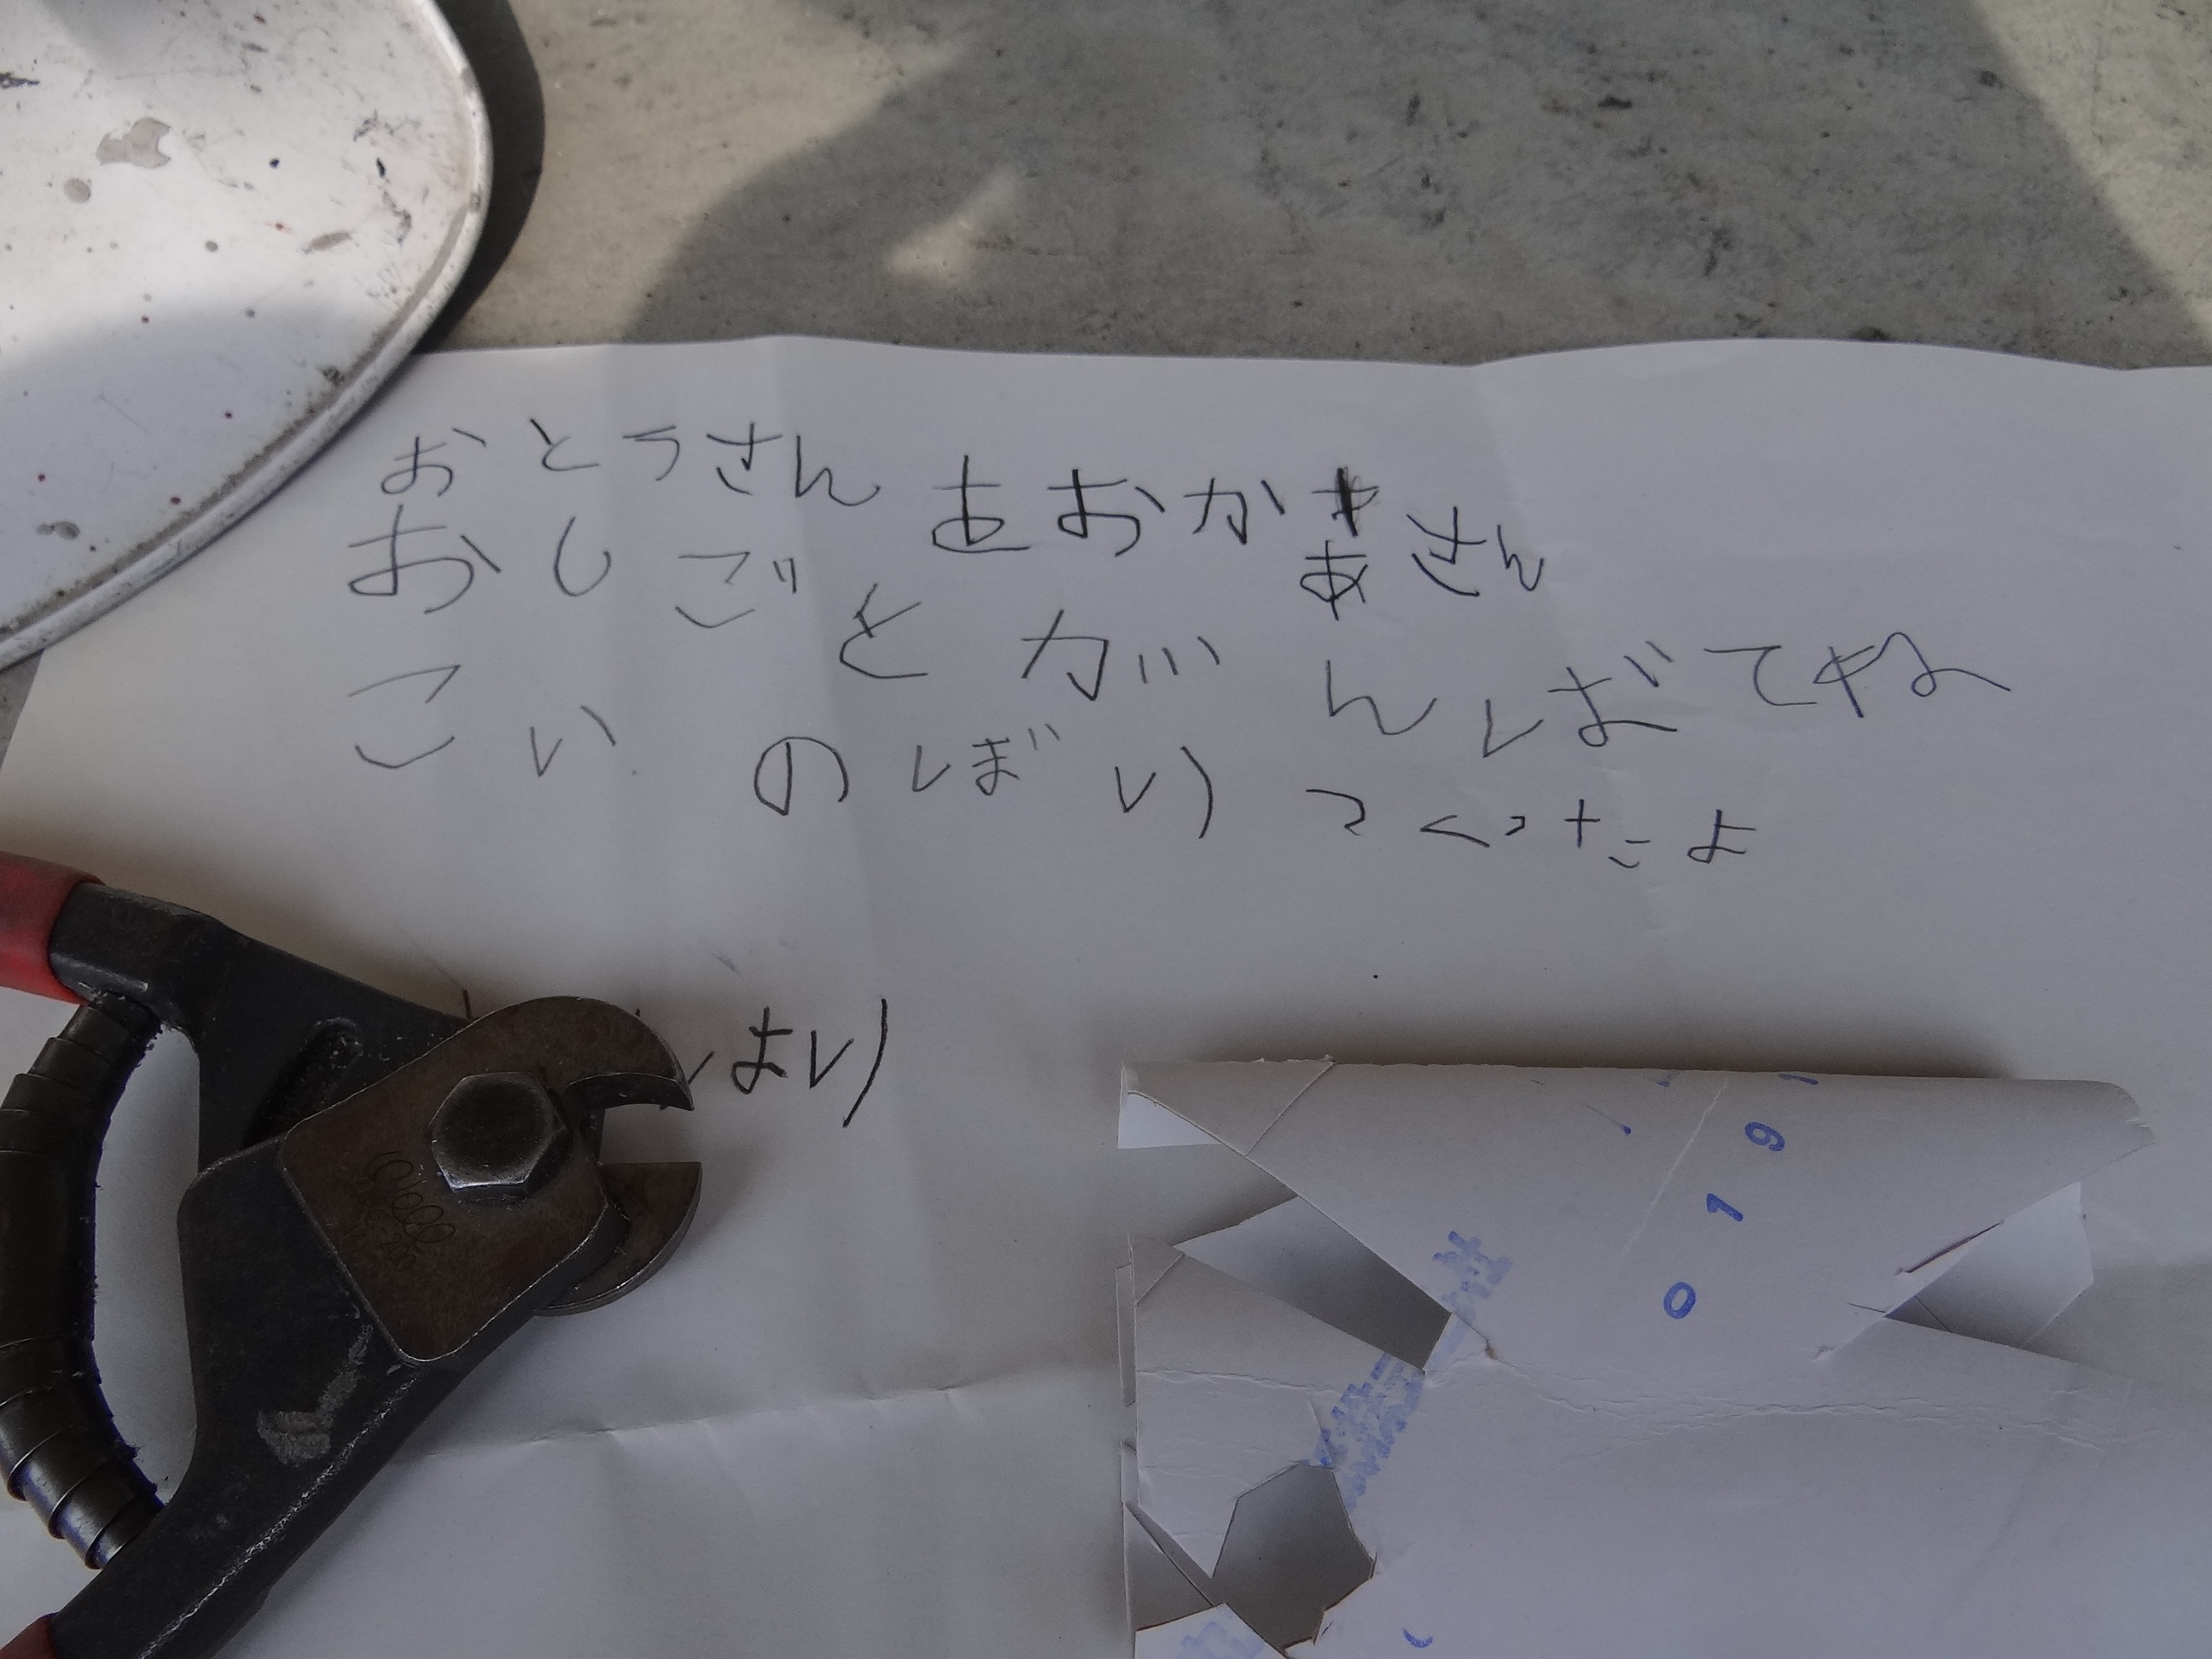 おとうさんとおかあさん
おしごとがんばてね
こいのぼりつくったよ
より
0191